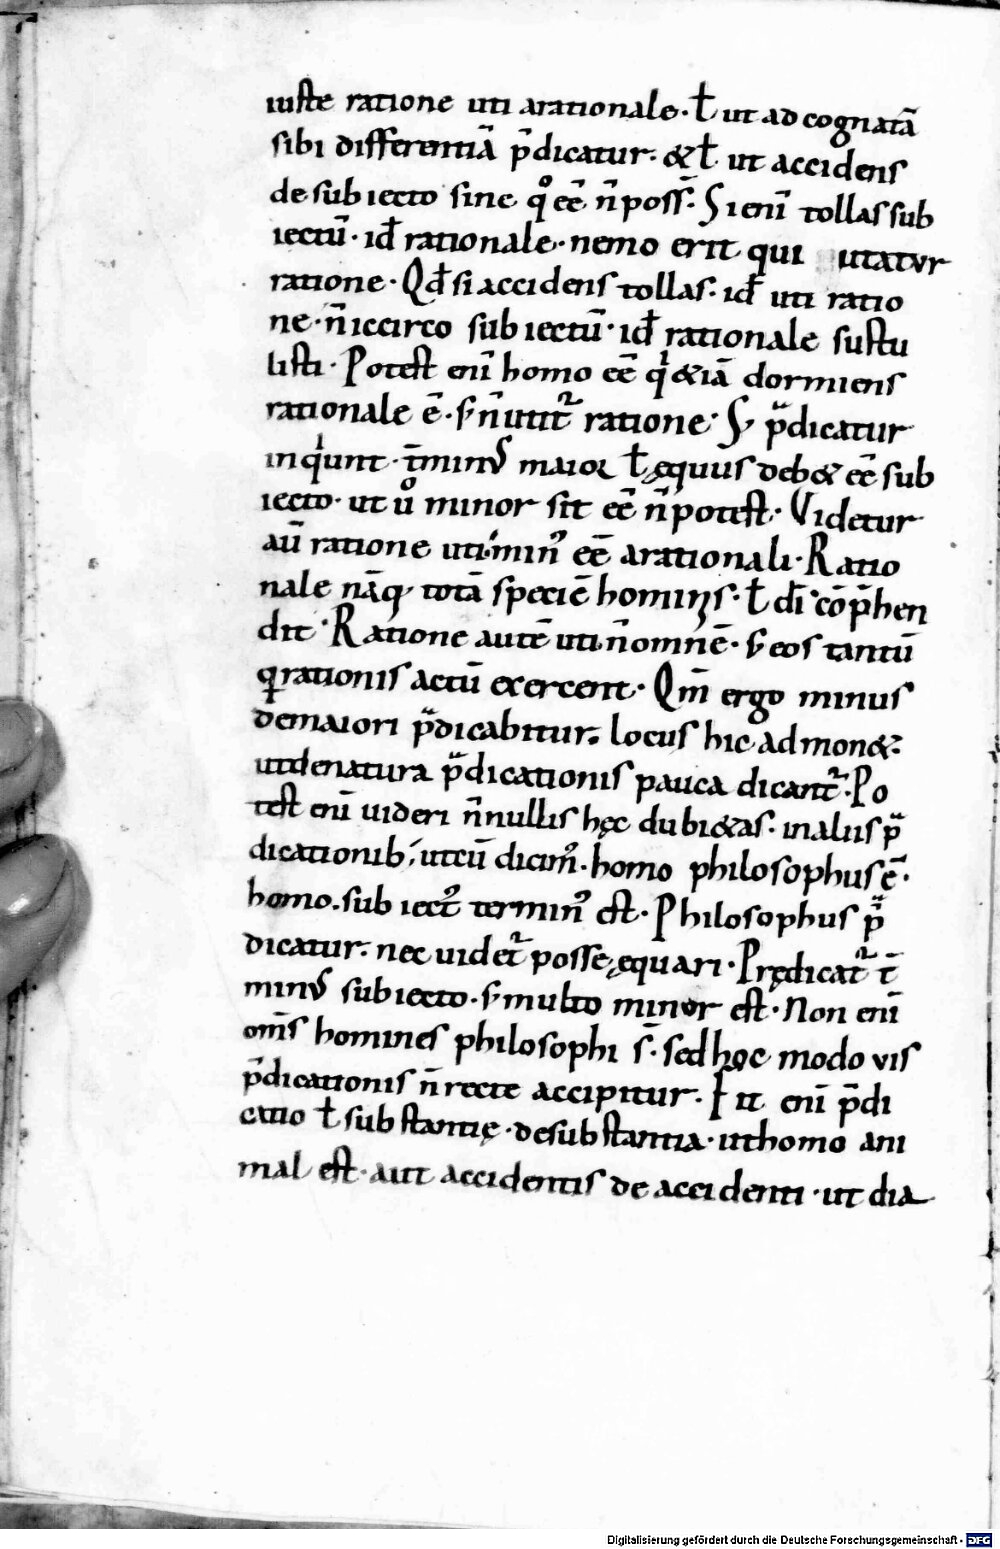 iuste ratione uti arationale · ł ut ad cognatā
sibi differentiā p̄dicatur · & ł ut accidens
de subiecto sine qͦ eē n̄ poss̄ · Si eni̅ tollas sub
iectū · id̵ rationale · nemo erit qui utatur
ratione · Qd̵ si accidens tollas · id̵ uti ratio
ne · n̄ iccirco subiectū · id̵ rationale sustu
listi · Potest eni̅ homo eē qͥ &iā dormiens
rationale ē · s; n̄ utit᷑ ratione · S; p̄dicatur
inqͥunt · t̄minꝰ maior ł ęquus deb& eē sub
iecto · ut uͦ minor sit eē n̄ potest · Videtur
aū ratione uti minꝰ eē arationali · Ratio
nale nāq; totā speciē hominis · ł di̅ cōp̄hen
dit · Ratione autē uti n̄ omnē · s; eos tantū
qͥ rationis actū exercent · Qm̄ ergo minus
de maiori p̄dicabitur · locus hic admon& ·
ut de natura p̄dicationis pauca dicant᷑ · Po
test eni̅ uideri n̄nullis hęc dubi&as · in aliis p̄
dicationib; ut cū dicimꝰ · homo philosophus ē ·
homo · subiectꝰ terminꝰ est · Philosophus p̄
dicatur · nec uidet᷑ posse ęquari · Prędicat᷑ t̄
minꝰ subiecto · s; multo minor est · Non eni̅
om̄s homines philosophi s̄ · sed hęc modo vis
p̄dicationis n̄ recte accipitur · Fit eni̅ p̄di
catio ł substantię · de substantia · ut homo ani
mal est · aut accidentis de accidenti · ut dia
Digitalisierung gefördert durch die Deutsche Forschungsgemeinschaft - DFG